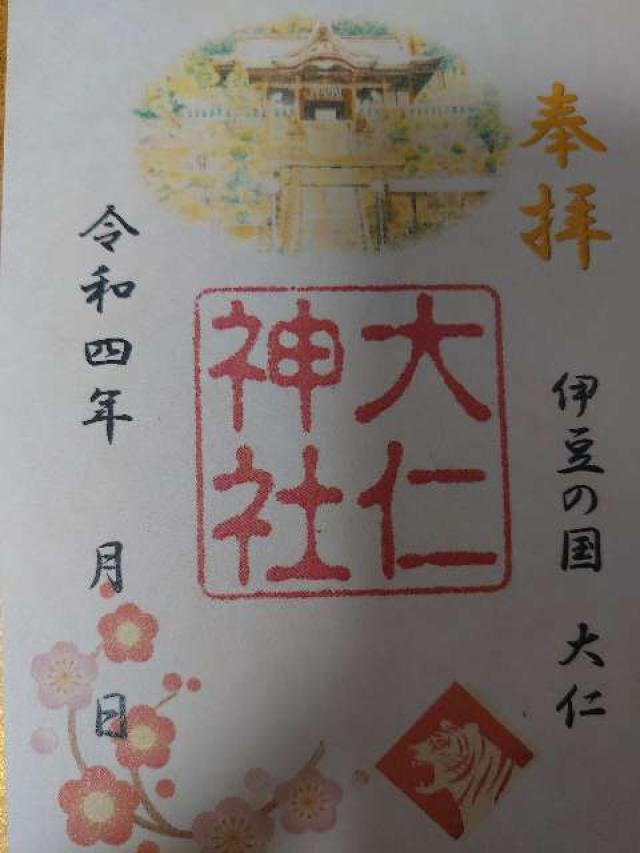 奉拝
伊豆の国 大仁
大仁
神社
令和四年 月 日